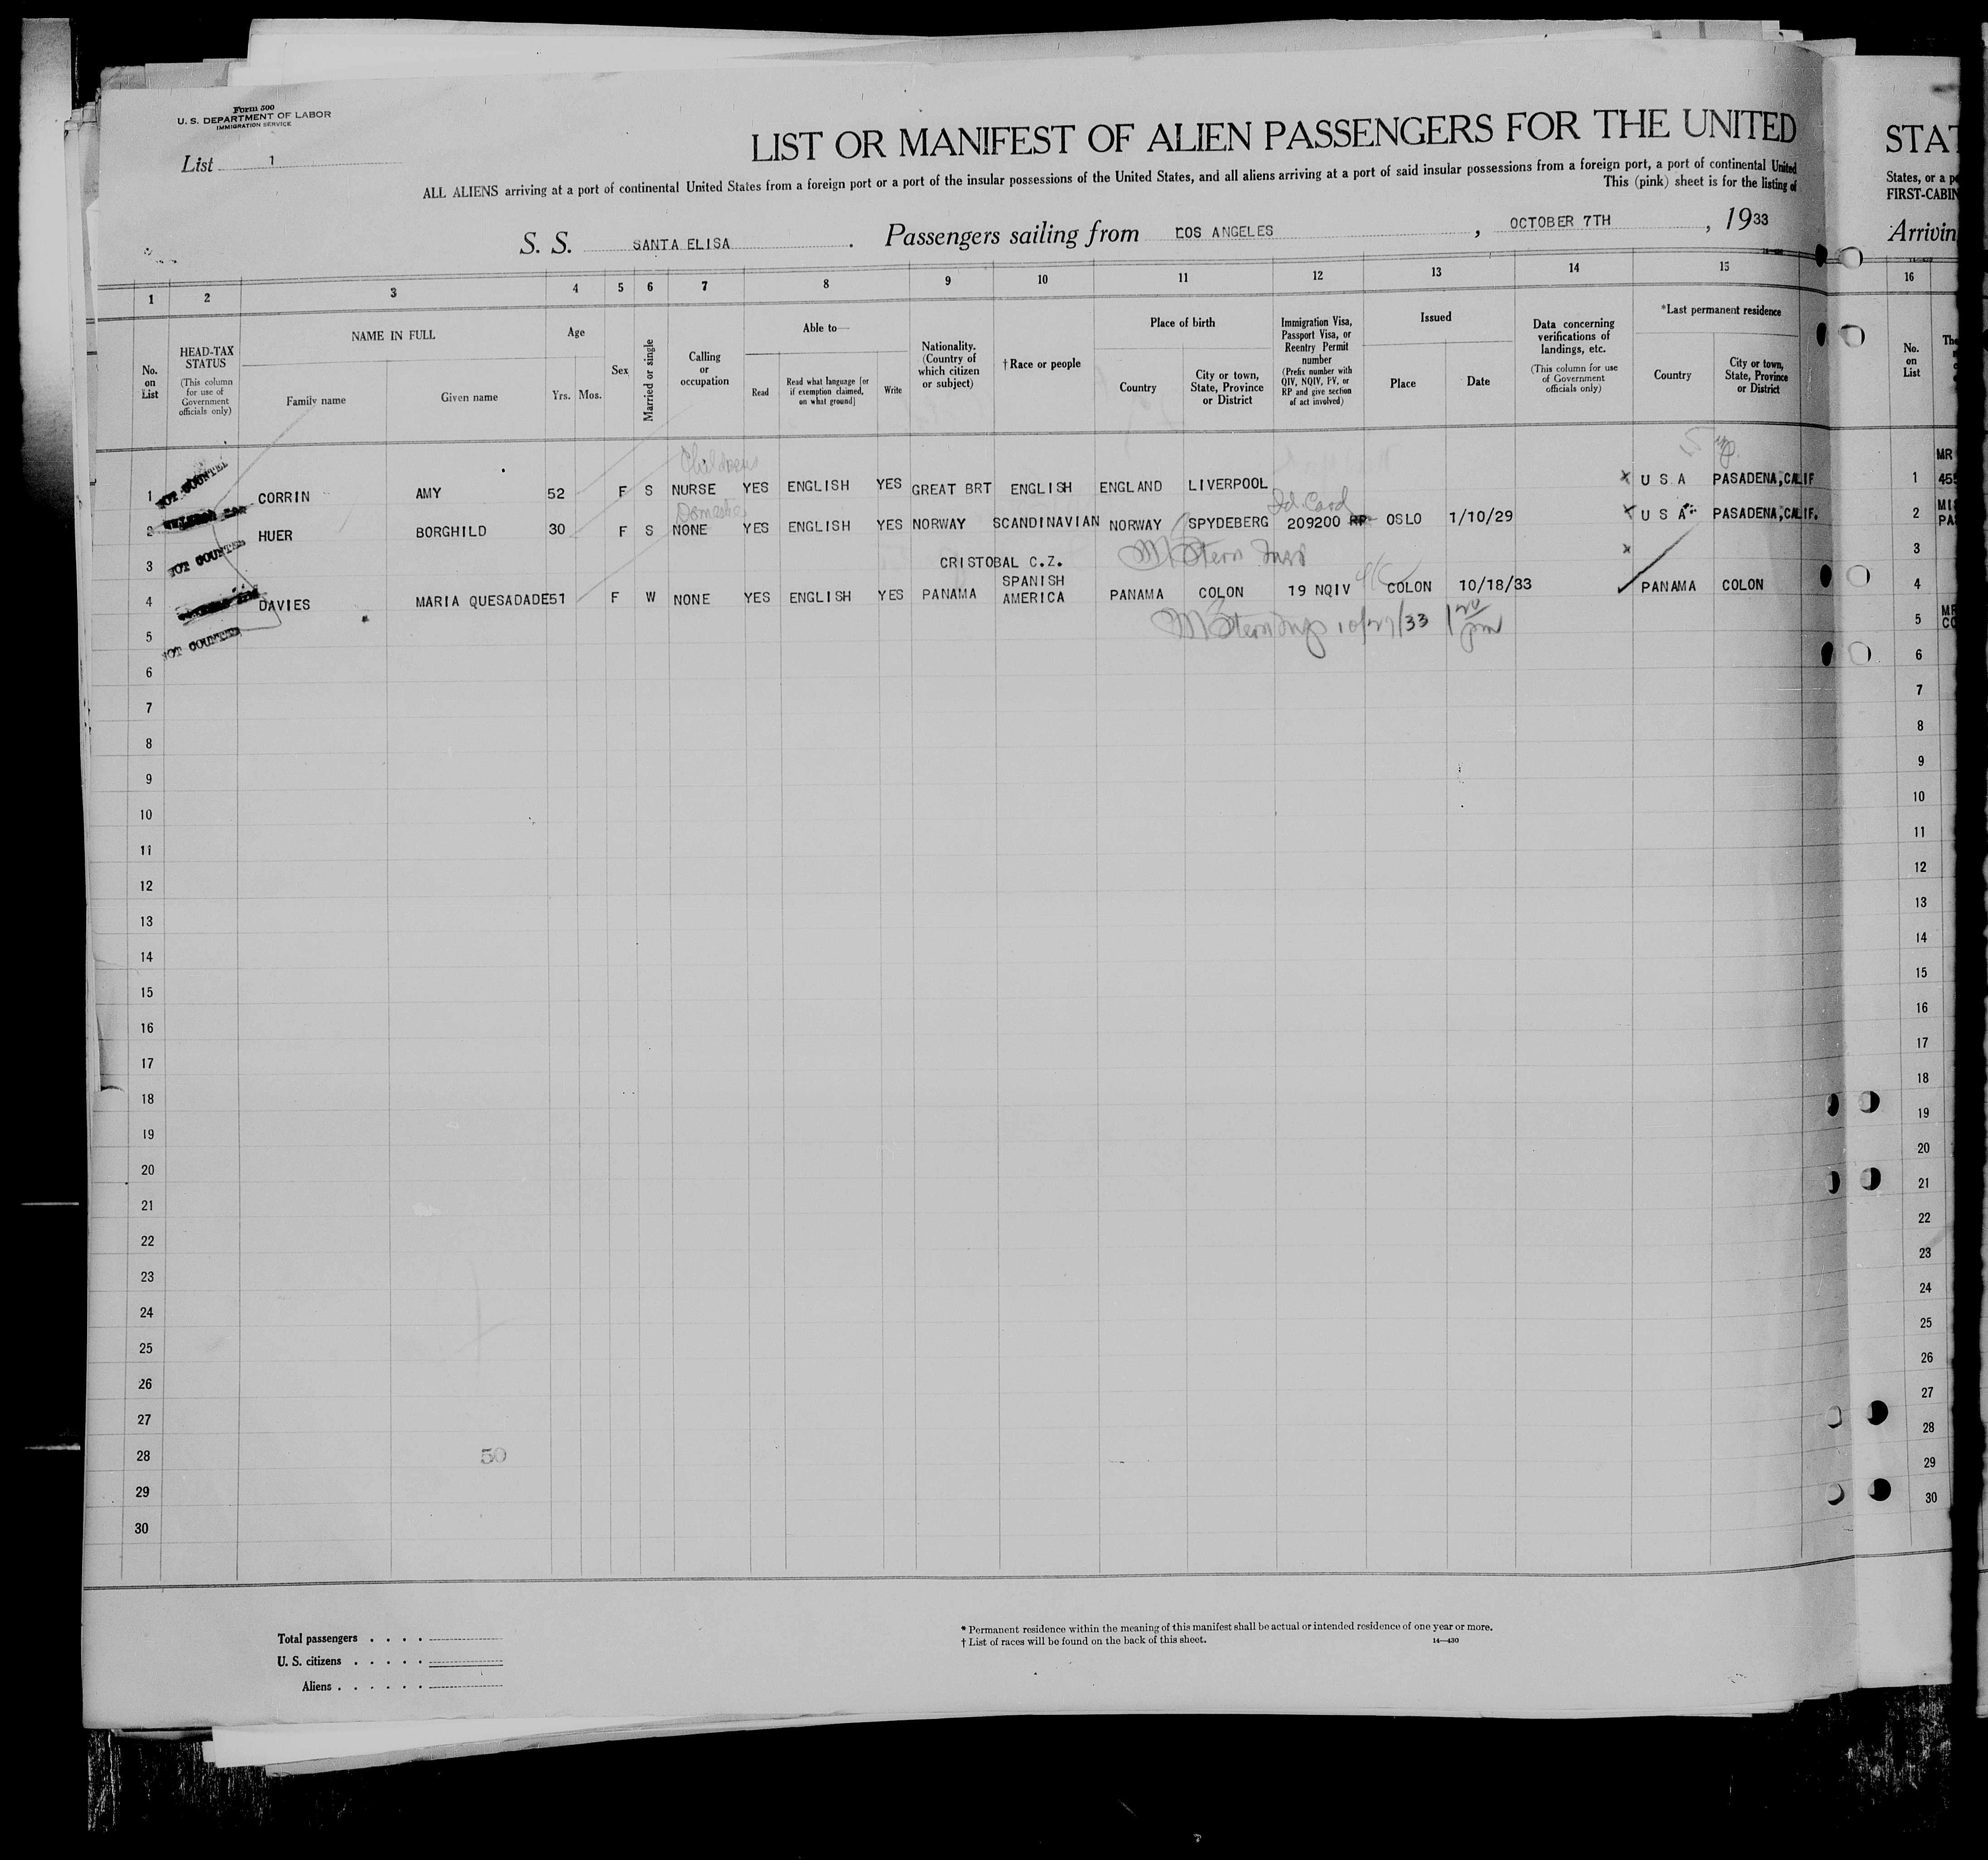 Form 500
U. S. DEPARTMENT OF LABOR
IMMIGRATION SERVICE
List 1
LIST OR MANIFEST OF ALIEN PASSENGERS FOR THE UNITED
ALL ALIENS arriving at a port of continental United States from a foreign port or a port of the insular possessions of the United States, and all aliens arriving at a port of said insular possessions from a foreign port, a port of continental United
This (pink) sheet is for the listing of
S. S. SANTA ELISA . Passengers sailing from LOS ANGELES , OCTOBER 7TH , 1933
STAT
States, or a po
FIRST-CABIN
Arrivin
1 2 3 4 5 6 7 8 9 10 11 12 13 14 15 16
No. on List
HEAD-TAX STATUS
(This column for use of Government officials only)
NAME IN FULL
Family name
Given name
Age
Yrs. Mos.
Sex
Married or single
Calling or occupation
Able to—
Read
Read what language [or if exemption claimed, on what ground]
Write
Nationality. (Country of which citizen or subject)
† Race or people
Place of birth
Country
City or town, State, Province or District
Immigration Visa, Passport Visa, or Reentry Permit number
(Prefix number with QIV, NQIV, PV, or RP and give section of act involved)
Issued
Place
Date
Data concerning verifications of landings, etc.
(This column for use of Government officials only)
*Last permanent residence
Country
City or town, State, Province or District
No. on List
The
NOT COUNTED
1 CORRIN AMY 52 F S NURSE YES ENGLISH YES GREAT BRT ENGLISH ENGLAND LIVERPOOL x U S A PASADENA,CALIF 1 455
MR
Domestic
Id. Card
2 HUER BORGHILD 30 F S NONE YES ENGLISH YES NORWAY SCANDINAVIAN NORWAY SPYDEBERG 209200 RP OSLO 1/10/29 x U S A PASADENA,CALIF. 2 MIS
PA
NOT COUNTED
3 CRISTOBAL C.Z. M Stern Insp x 3
4 DAVIES MARIA QUESADADE 51 F W NONE YES ENGLISH YES PANAMA SPANISH AMERICA PANAMA COLON 19 NQIV COLON 10/18/33 PANAMA COLON 4
NOT COUNTED
5 M Stern Insp 10/27/33 pm 5 MR
CO
6 6
7 7
8 8
9 9
10 10
11 11
12 12
13 13
14 14
15 15
16 16
17 17
18 18
19 19
20 20
21 21
22 22
23 23
24 24
25 25
26 26
27 27
28 50 28
29 29
30 30
Total passengers . . . .
U. S. citizens . . . . .
Aliens . . . . . .
* Permanent residence within the meaning of this manifest shall be actual or intended residence of one year or more.
† List of races will be found on the back of this sheet.
14—430